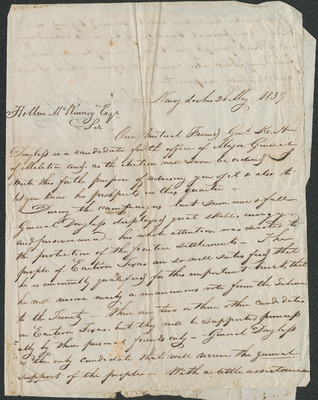 Nacogdoches 26 May 1839
McKinney Esqr
Sir
Our Mutual Friend Genl. K. H.
Douglass is a candidate for the office of Major General
of Militia and as the election will soon be ordered I
write this for the purpose of advising you of it & also to
let you know his prospects in this quarter.
During the campaigns last summer & fall
General Douglass displayed great skill, energy
and perseverance, his whole attention was devoted to
the protection of the frontier settlements — The
people of Eastern Texas are so well satisfied that
he is eminently qualified for this important trust, that
he will receive nearly a unanimous vote from the Sabine
to the Trinity — there are two or three other candidates
in Eastern Texas but they will be supported princip
ally by their personal friends only — General Douglass
is the only candidate that will receive the general
support of the people — With a little assistance